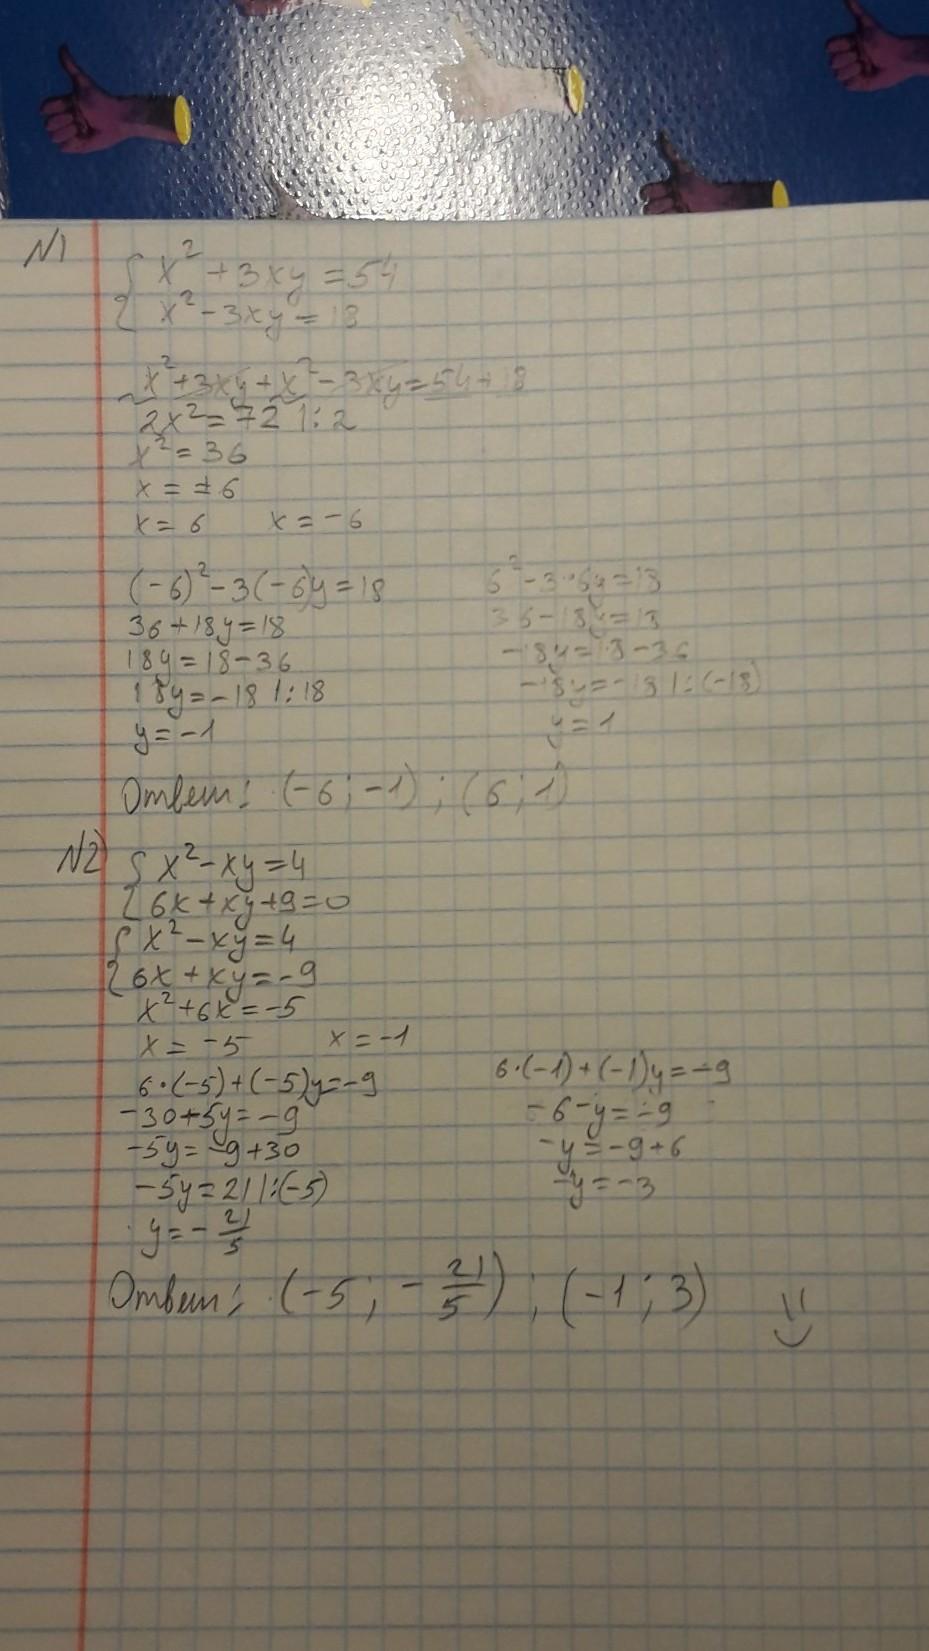 N1
{ x² + 3xy = 54
x² - 3xy = 18
x² + 3xy + x² - 3xy = 54 + 18
2x² = 72 |: 2
x² = 36
x = ± 6
x = 6 x = -6
(-6)² - 3(-6)y = 18
36 + 18y = 18
18y = 18 - 36
18y = -18 |: 18
y = -1
6² - 3·6y = 18
36 - 18y = 18
-18y = 18 - 36
-18y = -18 |: (-18)
y = 1
Ответ: (-6; -1); (6; 1)
N2
{ x² - xy = 4
6x + xy + 9 = 0
{ x² - xy = 4
6x + xy = -9
x² + 6x = -5
x = -5 x = -1
6·(-5) + (-5)y = -9
-30 + 5y = -9
-5y = -9 + 30
-5y = 21 |: (-5)
y = - 21/5
6·(-1) + (-1)y = -9
-6 - y = -9
-y = -9 + 6
-y = -3
Ответ: (-5; - 21/5); (-1; 3)